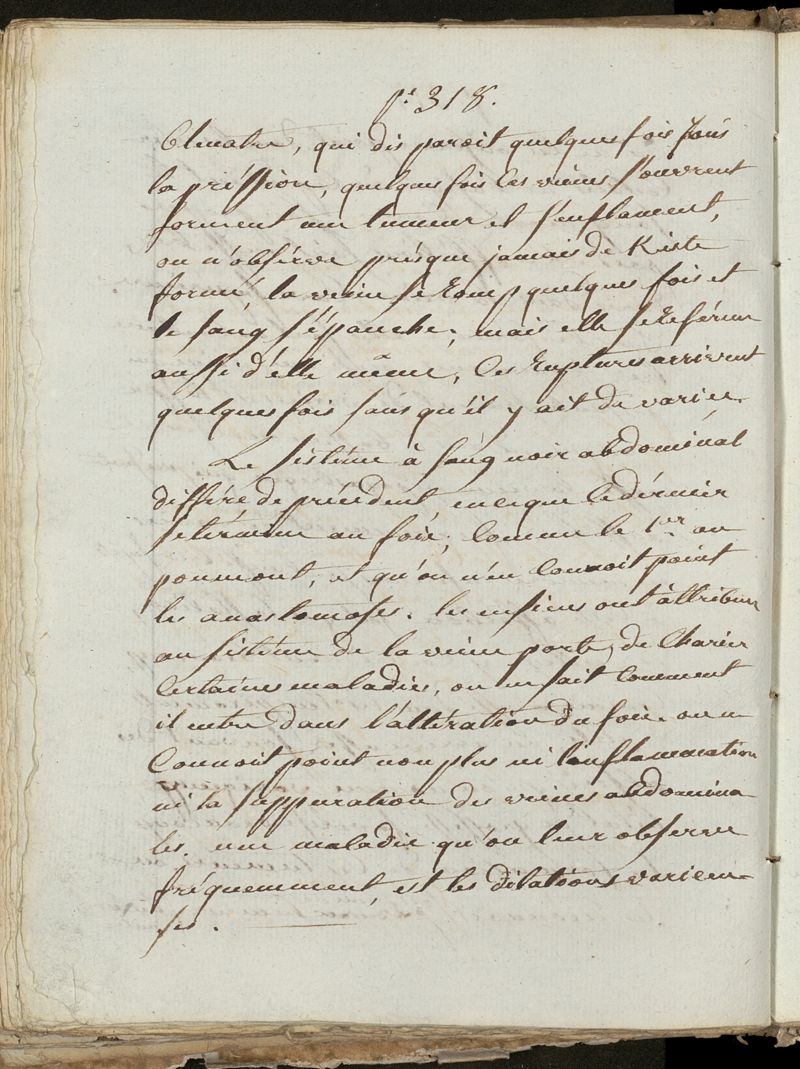 pe 318.
bleuatre, qui dis paroit quelques fois sous
la préssion, quelques fois les veines s'ouvrent
forment une tumeur et s'enflament,
on n'obsérve présque jamais de Kiste
formé, la veine se romp quelques fois et
le sang s'épanche; mais elle se reférme
aussi d'elle même, Ces ruptures arrivent
quelques fois sans qu'il y ait de varice.
Le sistéme à sang noir abdominal
différe de précédent, en ce que le dérnier
se términe au foie, comme le 1er au
poumont, et qu'on n'en connoit point
les anastomoses. les ensiens ont attribué
au sistéme de la veine porte, de Charier
Certaines maladies, on en sait comment
il entre dans l'altération du foie. on ne
Connoit point non plus ni l'inflammation
ni la suppuration des veines abdomina
les. une maladie qu'on leur observe
fréquemment, est les dilations variceu-
ses.